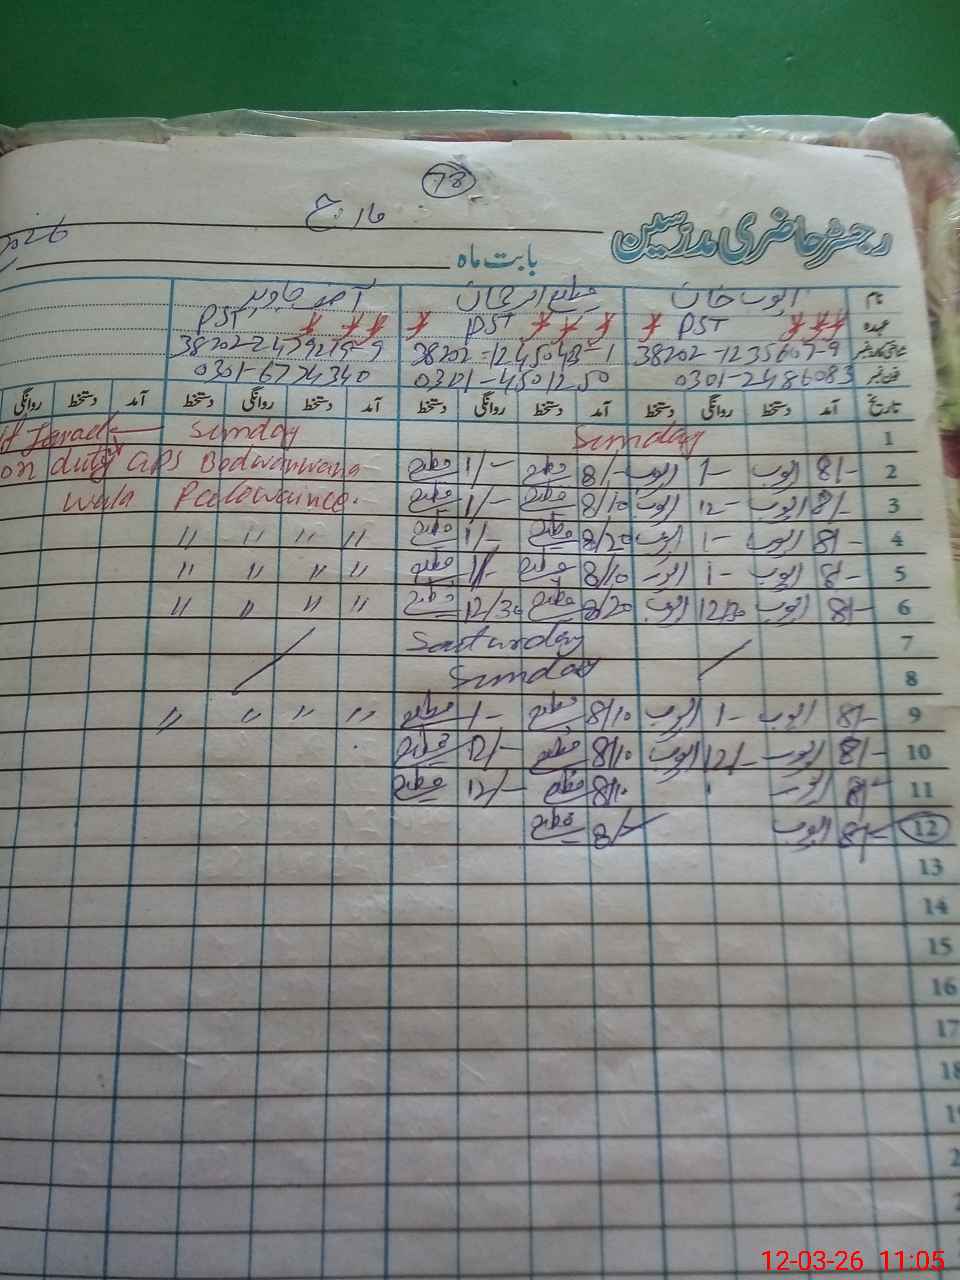 78
رجسٹر حاضری مدرسین
بابت ماہ مارچ 2026
نام ایوب خان مطیع الرحمان آصف جاوید
عہدہ PST PST PST
شناختی کارڈ نمبر 38202-1235607-9 38202-1245043-1 38202-2479219-9
فون نمبر 0301-2486083 0301-4501250 0301-6774340
تاریخ آمد دستخط روانگی دستخط آمد دستخط روانگی دستخط آمد دستخط روانگی دستخط آمد دستخط روانگی
1 Sunday Sunday
2 8/- ایوب 1- ایوب 8/- مطیع 1/- مطیع on duty GPS
3 8/- ایوب 12- ایوب 8/10 مطیع 1/- مطیع wala
4 8/- ایوب 1- ایوب 8/20 مطیع 1/- مطیع " " " "
5 8/- ایوب 1- ایوب 8/10 مطیع 1/- مطیع " " " "
6 8/- ایوب 12/30 ایوب 8/20 مطیع 12/30 مطیع " " " "
7 Saturday
8 Sunday
9 8/- ایوب 1- ایوب 8/10 مطیع 1- مطیع " " " "
10 8/- ایوب 12/- ایوب 8/10 مطیع 12/- مطیع
11 8/- ایوب 8/10 مطیع 12/- مطیع
12 8/- ایوب 8/- مطیع
13
14
15
16
17
18
12-03-26 11:05